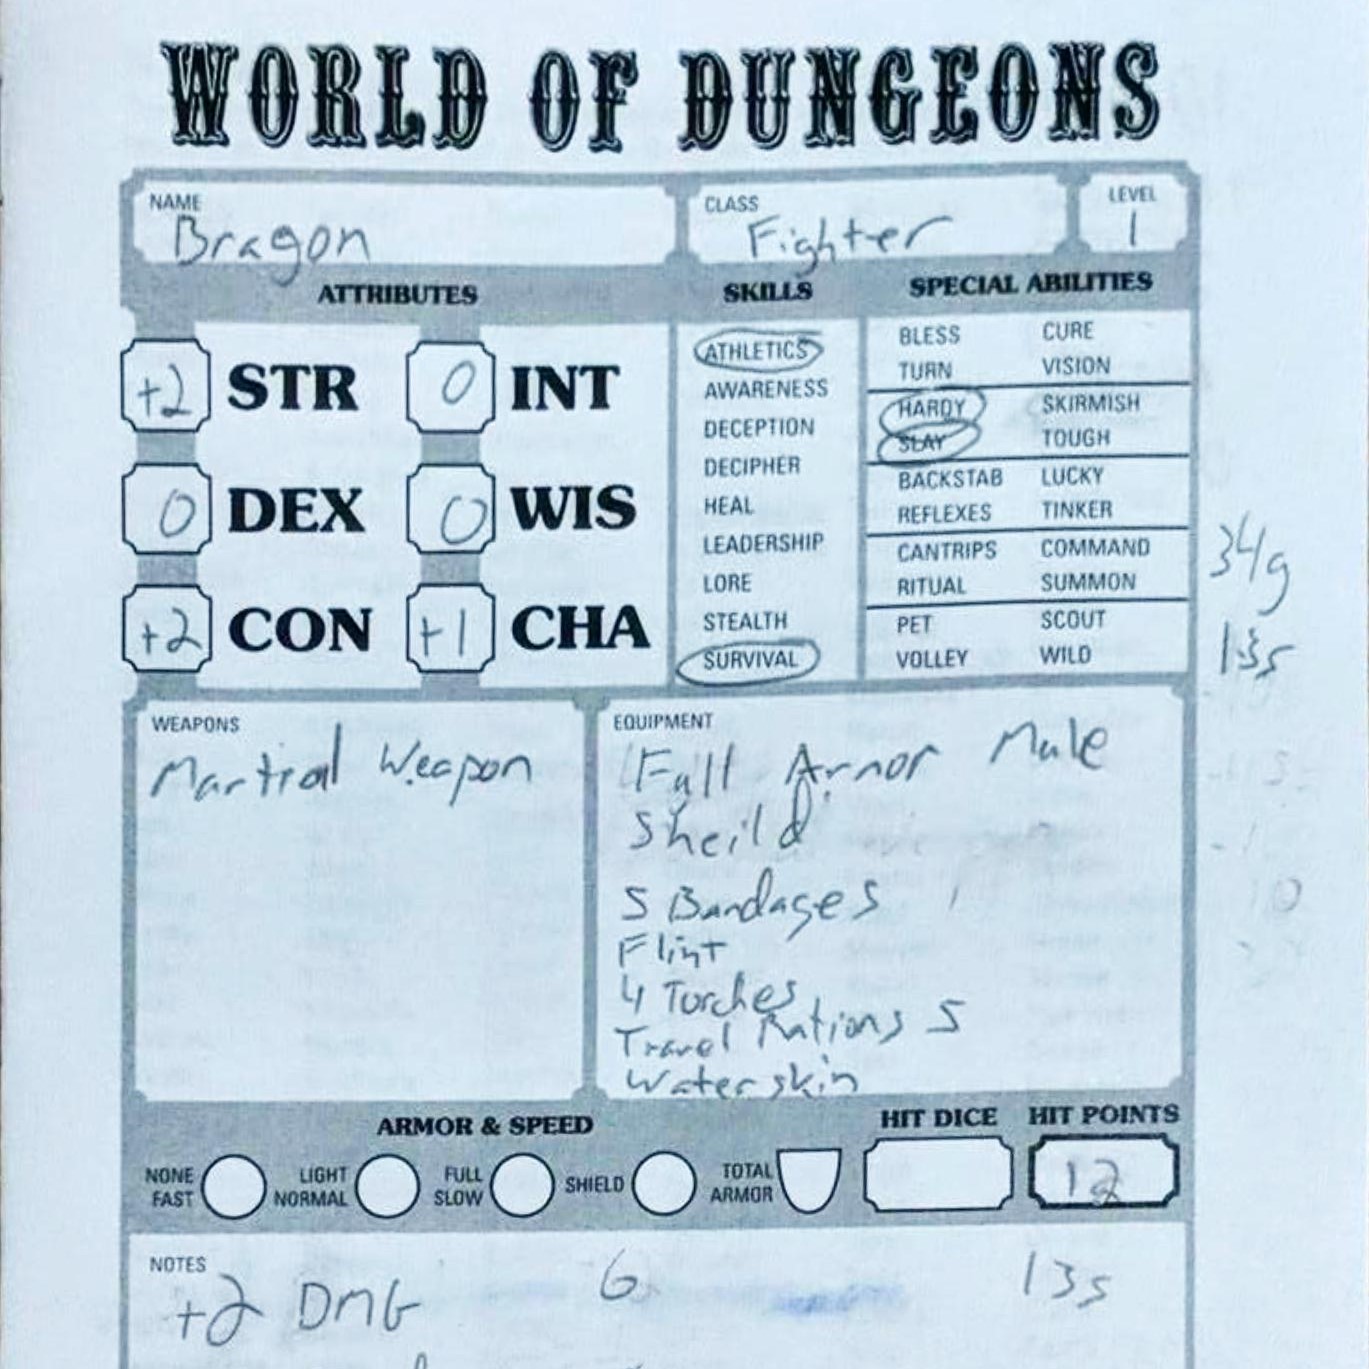 WORLD OF DUNGEONS
NAME
Bragon
CLASS
Fighter
LEVEL
1
ATTRIBUTES
+2 STR
0 INT
0 DEX
0 WIS
+2 CON
+1 CHA
SKILLS
ATHLETICS
AWARENESS
DECEPTION
DECIPHER
HEAL
LEADERSHIP
LORE
STEALTH
SURVIVAL
SPECIAL ABILITIES
BLESS CURE
TURN VISION
HARDY SKIRMISH
SLAY TOUGH
BACKSTAB LUCKY
REFLEXES TINKER
CANTRIPS COMMAND
RITUAL SUMMON
PET SCOUT
VOLLEY WILD
34g
13s
WEAPONS
Martial Weapon
EQUIPMENT
Full Armor Mule
Sheild
5 Bandages
Flint
4 Torches
Travel Rations 5
Waterskin
ARMOR & SPEED
NONE
FAST
LIGHT
NORMAL
FULL
SLOW
SHIELD
TOTAL
ARMOR
HIT DICE
HIT POINTS
12
NOTES
+2 DMG
6
13s